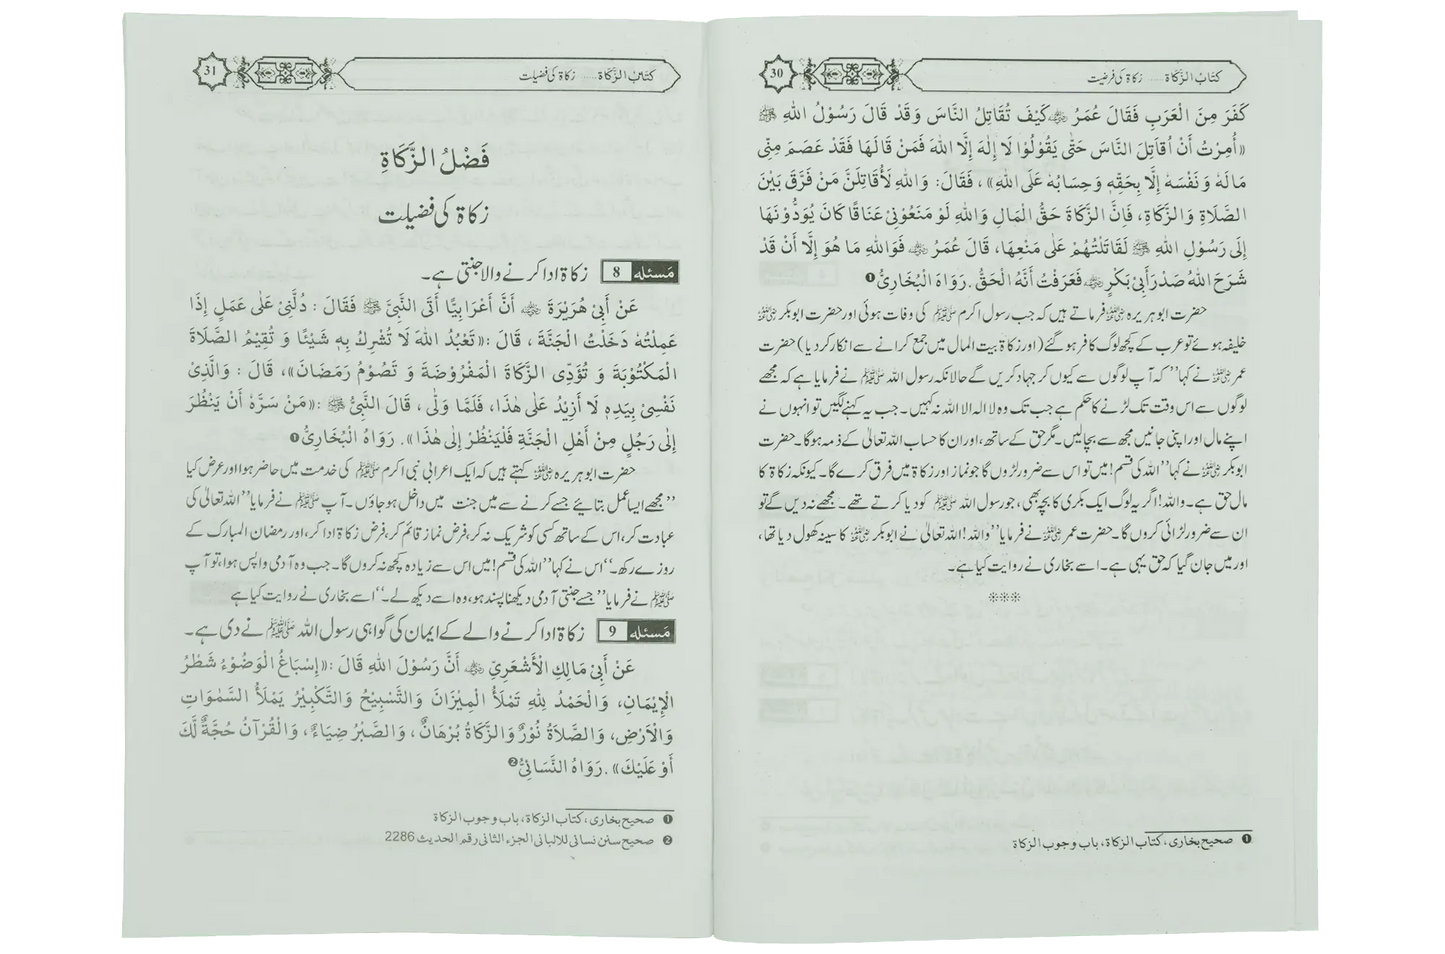 30
کتاب الزکاۃ ..... زکاۃ کی فرضیت
كَفَرَ مِنَ الْعَرَبِ فَقَالَ عُمَرُ ﷺ كَيْفَ تُقَاتِلُ النَّاسَ وَقَدْ قَالَ رَسُوْلُ اللهِ ﷺ
«أُمِرْتُ أَنْ أُقَاتِلَ النَّاسَ حَتّٰى يَقُوْلُوْا لَا إِلٰهَ إِلَّا اللهُ فَمَنْ قَالَهَا فَقَدْ عَصَمَ مِنِّى
مَالَهُ وَ نَفْسَهُ إِلَّا بِحَقِّهٖ وَحِسَابُهُ عَلَى اللهِ» ، فَقَالَ: وَاللهِ لَأُقَاتِلَنَّ مَنْ فَرَّقَ بَيْنَ
الصَّلَاةِ وَ الزَّكَاةِ، فَإِنَّ الزَّكَاةَ حَقُّ الْمَالِ وَاللهِ لَوْ مَنَعُوْنِىْ عَنَاقًا كَانَ يُوَدُّوْنَهَا
إِلَى رَسُوْلِ اللهِ ﷺ لَقَاتَلْتُهُمْ عَلٰى مَنْعِهَا، قَالَ عُمَرُ فَوَاللهِ مَا هُوَ إِلَّا أَنْ قَدْ
شَرَحَ اللهُ صَدْرَ أَبِىْ بَكْرٍ فَعَرَفْتُ أَنَّهُ الْحَقُّ . رَوَاهُ الْبُخَارِىُّ ❶
حضرت ابوہریرہ فرماتے ہیں کہ جب رسول اکرم ﷺ کی وفات ہوئی اور حضرت ابوبکر
خلیفہ ہوئے تو عرب کے کچھ لوگ کافر ہو گئے (اور زکاۃ بیت المال میں جمع کرانے سے انکار کر دیا) حضرت
عمر نے کہا ’’کہ آپ لوگوں سے کیوں کر جہاد کریں گے حالانکہ رسول اللہ ﷺ نے فرمایا ہے کہ مجھے
لوگوں سے اس وقت تک لڑنے کا حکم ہے جب تک وہ لا الہ الا اللہ نہ کہیں۔ جب یہ کہنے لگیں تو انہوں نے
اپنے مال اور اپنی جانیں مجھ سے بچالیں۔ مگر حق کے ساتھ، اور ان کا حساب اللہ تعالیٰ کے ذمہ ہوگا۔ حضرت
ابوبکر نے کہا ’’اللہ کی قسم! میں تو اس سے ضرور لڑوں گا جو نماز اور زکاۃ میں فرق کرے گا۔ کیونکہ زکاۃ کا
مال حق ہے۔ واللہ! اگر یہ لوگ ایک بکری کا بچہ بھی، جو رسول اللہ ﷺ کو دیا کرتے تھے۔ مجھے نہ دیں گے تو
ان سے ضرور لڑائی کروں گا۔ حضرت عمر نے فرمایا ’’واللہ! اللہ تعالیٰ نے ابوبکر کا سینہ کھول دیا تھا،
اور میں جان گیا کہ حق یہی ہے۔ اسے بخاری نے روایت کیا ہے۔
※※※
❶ صحیح بخاری، کتاب الزکاۃ، باب وجوب الزکاۃ
31
کتاب الزکاۃ ..... زکاۃ کی فضیلت
فَضْلُ الزَّكَاةِ
زکاۃ کی فضیلت
مسئلہ 8 زکاۃ ادا کرنے والا جنتی ہے۔
عَنْ أَبِىْ هُرَيْرَةَ أَنَّ أَعْرَابِيًّا أَتَى النَّبِىَّ ﷺ فَقَالَ : دُلَّنِىْ عَلٰى عَمَلٍ إِذَا
عَمِلْتُهُ دَخَلْتُ الْجَنَّةَ ، قَالَ :«تَعْبُدُ اللهَ لَا تُشْرِكُ بِهٖ شَيْئًا وَ تُقِيْمُ الصَّلَاةَ
الْمَكْتُوْبَةَ وَ تُؤَدِّى الزَّكَاةَ الْمَفْرُوْضَةَ وَ تَصُوْمُ رَمَضَانَ»، قَالَ : وَالَّذِىْ
نَفْسِىْ بِيَدِهٖ لَا أَزِيْدُ عَلٰى هٰذَا، فَلَمَّا وَلّٰى ، قَالَ النَّبِىُّ ﷺ :«مَنْ سَرَّهُ أَنْ يَنْظُرَ
إِلٰى رَجُلٍ مِنْ أَهْلِ الْجَنَّةِ فَلْيَنْظُرْ إِلٰى هٰذَا». رَوَاهُ الْبُخَارِىُّ ❶
حضرت ابوہریرہ کہتے ہیں کہ ایک اعرابی نبی اکرم ﷺ کی خدمت میں حاضر ہوا اور عرض کیا
’’مجھے ایسا عمل بتائیے جسے کرنے سے میں جنت میں داخل ہو جاؤں۔ آپ ﷺ نے فرمایا ’’اللہ تعالیٰ کی
عبادت کر، اس کے ساتھ کسی کو شریک نہ کر، فرض نماز قائم کر، فرض زکاۃ ادا کر، اور رمضان المبارک کے
روزے رکھ۔‘‘ اس نے کہا ’’اللہ کی قسم! میں اس سے زیادہ کچھ نہ کروں گا۔ جب وہ آدمی واپس ہوا، تو آپ
ﷺ نے فرمایا ’’جسے جنتی آدمی دیکھنا پسند ہو، وہ اسے دیکھ لے۔‘‘ اسے بخاری نے روایت کیا ہے
مسئلہ 9 زکاۃ ادا کرنے والے کے ایمان کی گواہی رسول اللہ ﷺ نے دی ہے۔
عَنْ أَبِىْ مَالِكٍ الْأَشْعَرِىِّ أَنَّ رَسُوْلَ اللهِ قَالَ :«إِسْبَاغُ الْوَضُوْءِ شَطْرُ
الْإِيْمَانِ، وَالْحَمْدُ لِلهِ تَمْلَأُ الْمِيْزَانَ وَالتَّسْبِيْحُ وَالتَّكْبِيْرُ يَمْلَأُ السَّمٰوَاتِ
وَالْأَرْضِ، وَالصَّلَاةُ نُوْرٌ وَالزَّكَاةُ بُرْهَانٌ ، وَالصَّبْرُ ضِيَاءٌ، وَالْقُرْآنُ حُجَّةٌ لَّكَ
أَوْ عَلَيْكَ» . رَوَاهُ النَّسَائِىُّ ❷
❶ صحیح بخاری، کتاب الزکاۃ، باب وجوب الزکاۃ
❷ صحیح سنن نسائی للالبانی الجزء الثانی رقم الحدیث 2286